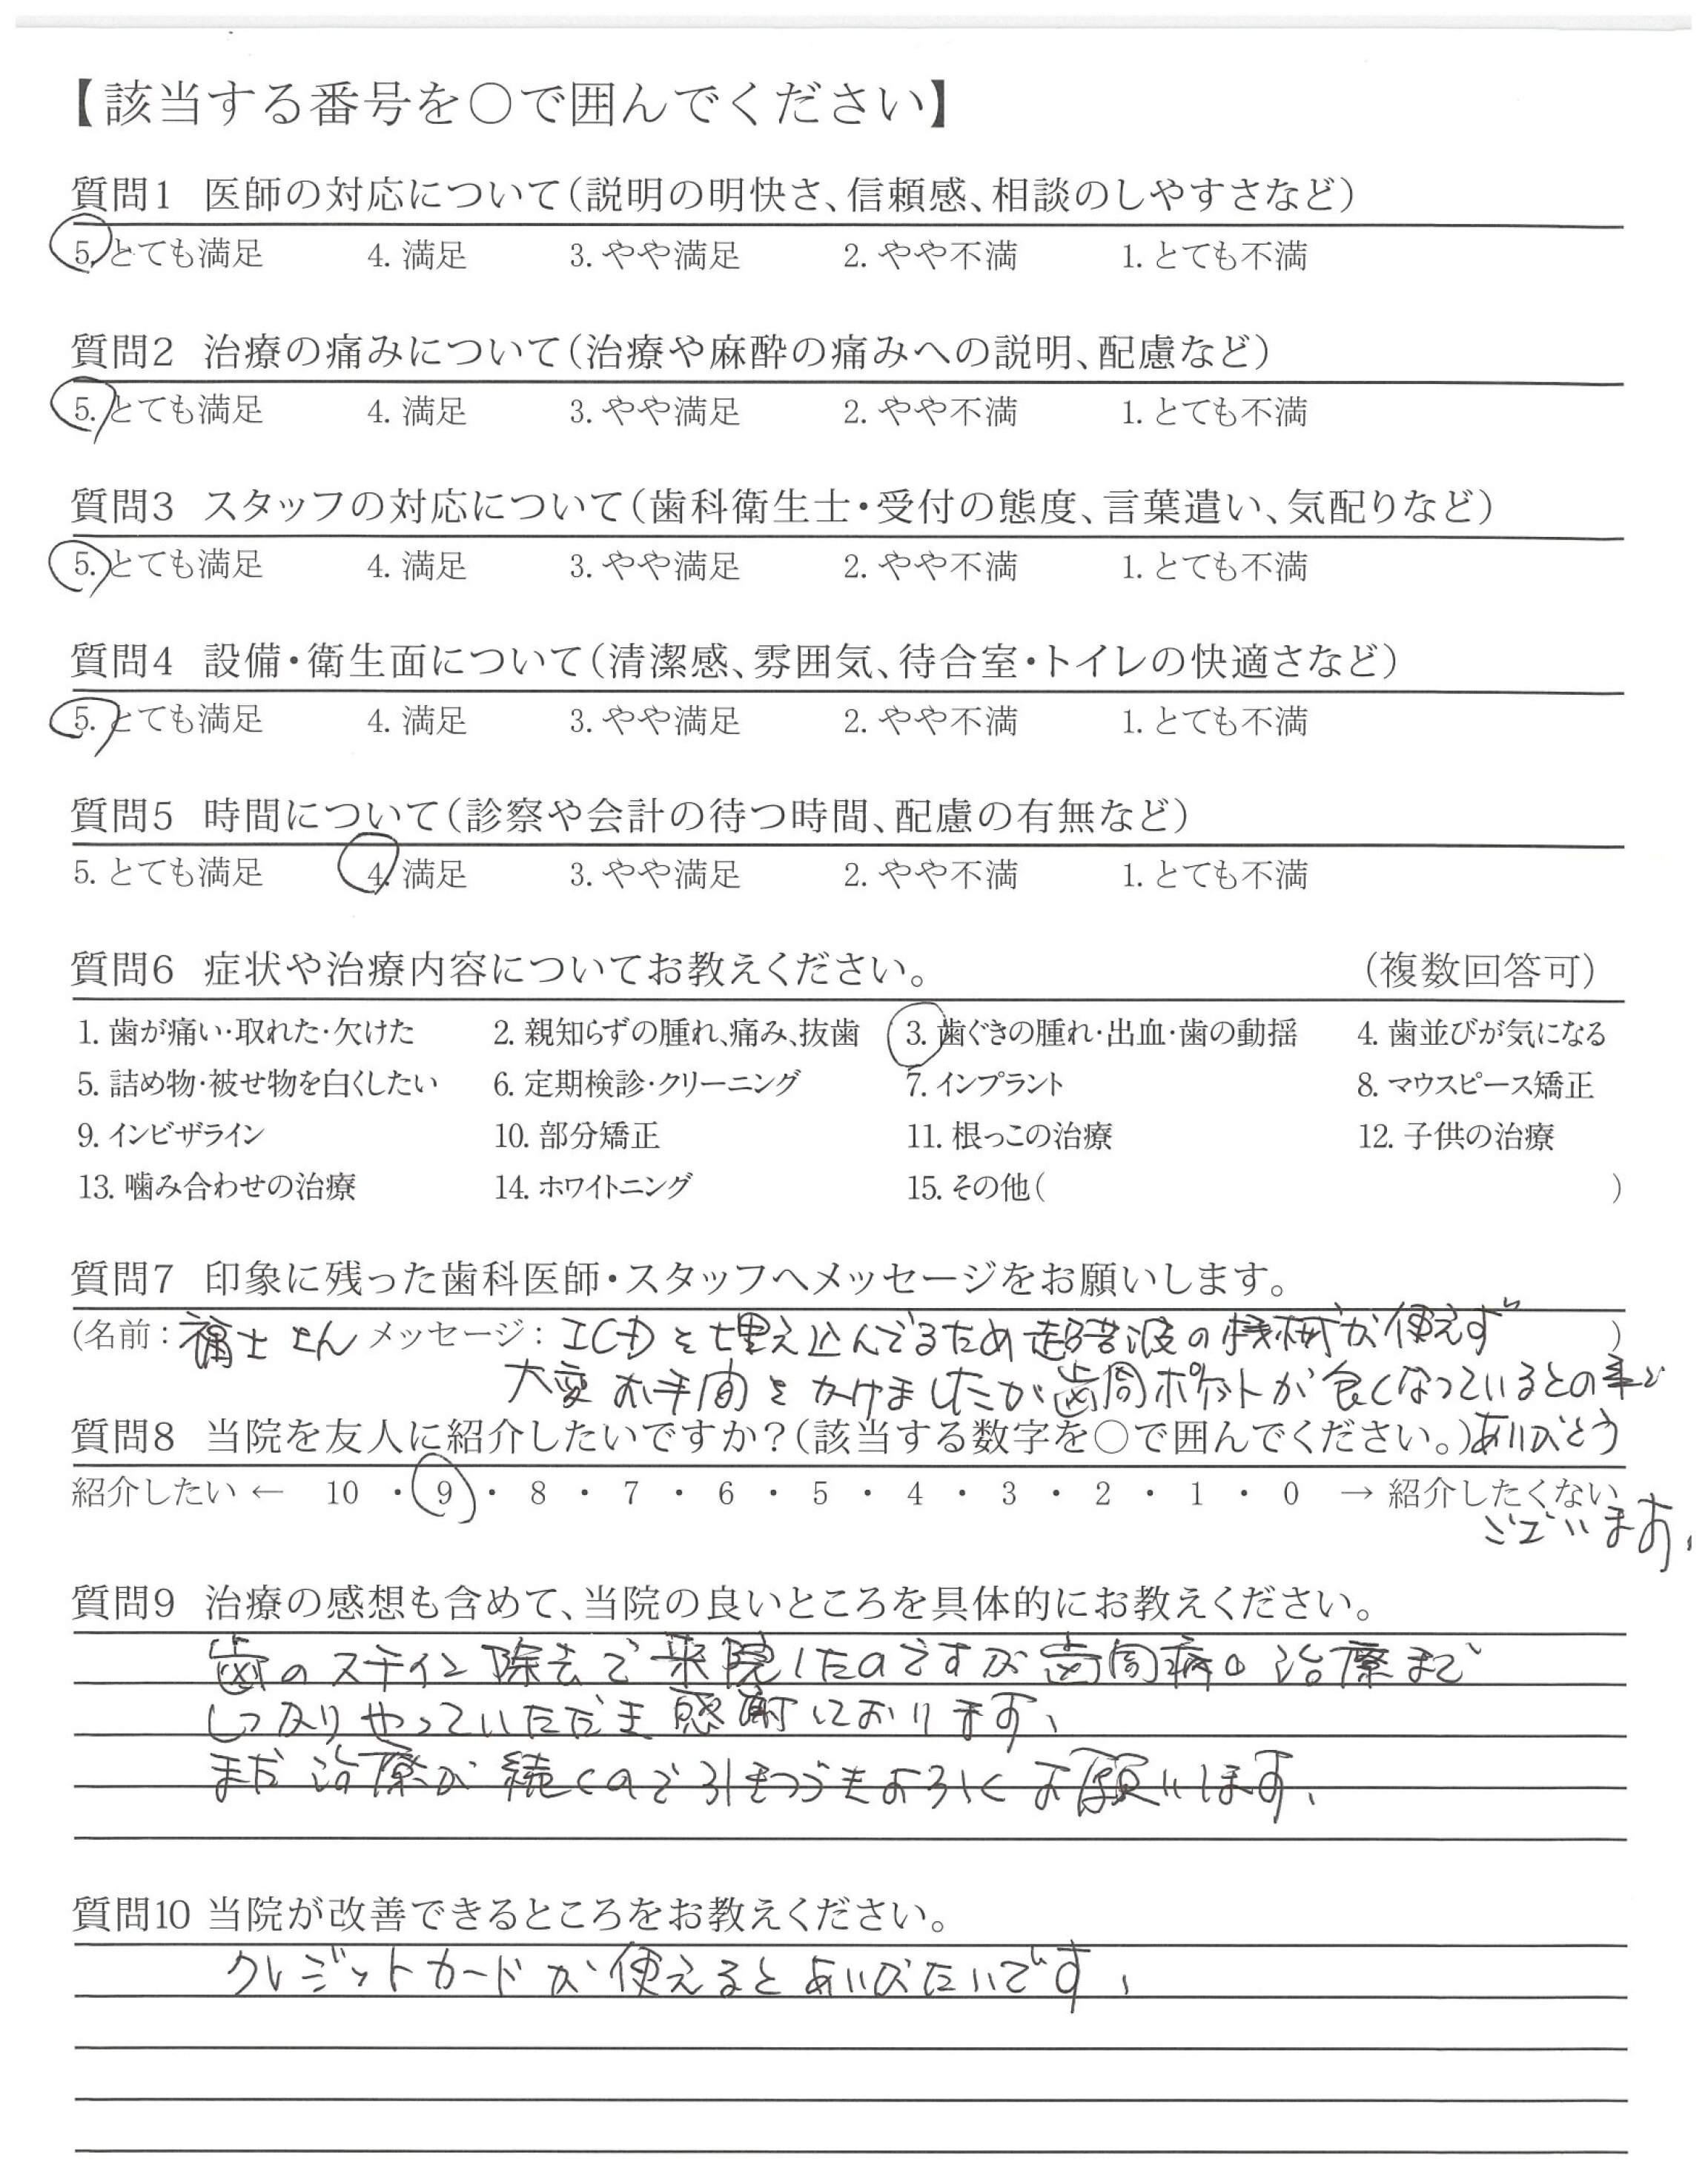 【該当する番号を〇で囲んでください】
質問1 医師の対応について(説明の明快さ、信頼感、相談のしやすさなど)
5. とても満足 4. 満足 3. やや満足 2. やや不満 1. とても不満
質問2 治療の痛みについて(治療や麻酔の痛みへの説明、配慮など)
5. とても満足 4. 満足 3. やや満足 2. やや不満 1. とても不満
質問3 スタッフの対応について(歯科衛生士・受付の態度、言葉遣い、気配りなど)
5. とても満足 4. 満足 3. やや満足 2. やや不満 1. とても不満
質問4 設備・衛生面について(清潔感、雰囲気、待合室・トイレの快適さなど)
5. とても満足 4. 満足 3. やや満足 2. やや不満 1. とても不満
質問5 時間について(診察や会計の待つ時間、配慮の有無など)
5. とても満足 4. 満足 3. やや満足 2. やや不満 1. とても不満
質問6 症状や治療内容についてお教えください。 (複数回答可)
1. 歯が痛い・取れた・欠けた 2. 親知らずの腫れ、痛み、抜歯 3. 歯ぐきの腫れ・出血・歯の動揺 4. 歯並びが気になる
5. 詰め物・被せ物を白くしたい 6. 定期検診・クリーニング 7. インプラント 8. マウスピース矯正
9. インビザライン 10. 部分矯正 11. 根っこの治療 12. 子供の治療
13. 噛み合わせの治療 14. ホワイトニング 15. その他( )
質問7 印象に残った歯科医師・スタッフへメッセージをお願いします。
(名前: 福士さん メッセージ: ICDを埋え込んでるため超音波の機械が使えず )
大変お手間をかけましたが歯周ポケットが良くなっているとの事で
質問8 当院を友人に紹介したいですか?(該当する数字を〇で囲んでください。) ありがとう
紹介したい ← 10 ・ 9 ・ 8 ・ 7 ・ 6 ・ 5 ・ 4 ・ 3 ・ 2 ・ 1 ・ 0 → 紹介したくない
ございます、
質問9 治療の感想も含めて、当院の良いところを具体的にお教えください。
歯のステイン除去で来院したのですが歯周病の治療まで
しっかりやっていただき感謝しております、
まだ治療が続くので引きつづきよろしくお願いします、
質問10 当院が改善できるところをお教えください。
クレジットカードが使えるとありがたいです、